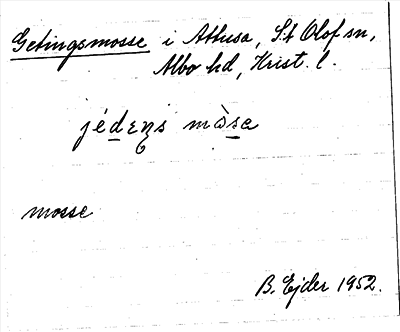 Getingsmosse i Athusa, S:t Olof sn,
Albo hd, Krist. l.
jédens mòse
mosse
B. Ejder 1952.